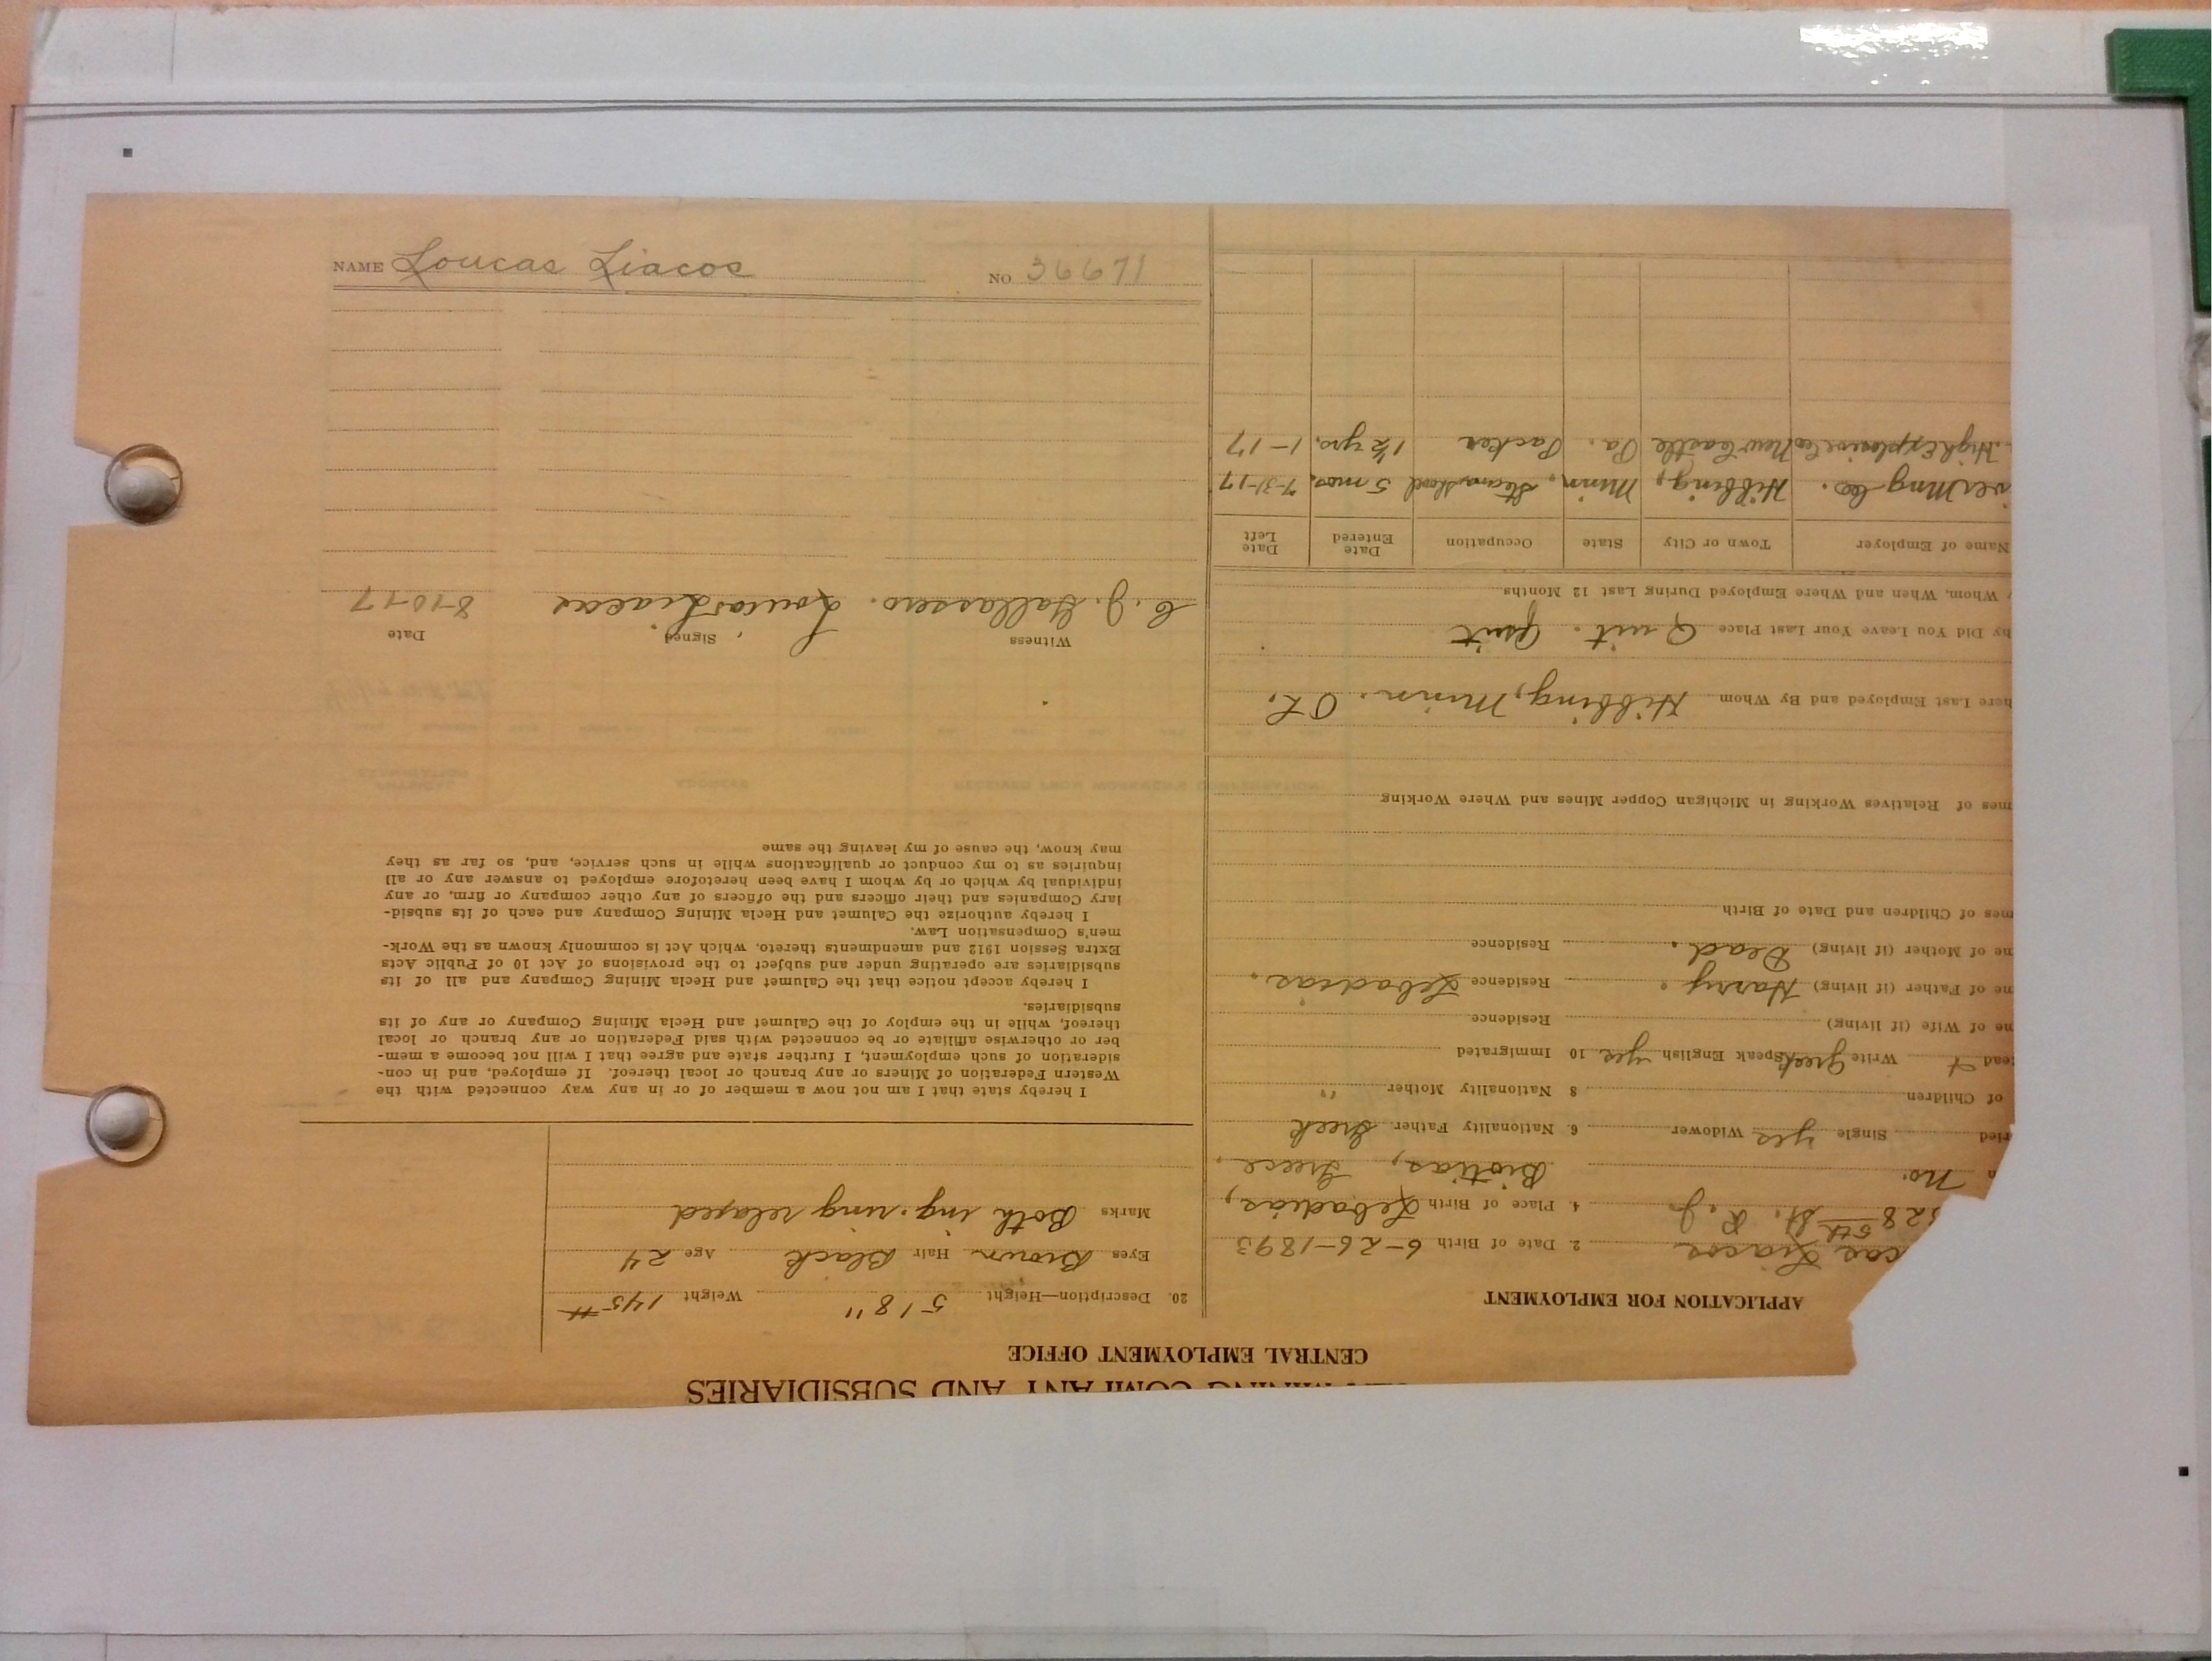 NAME Loucas Liacos NO. 36671
MINING COMPANY AND SUBSIDIARIES
CENTRAL EMPLOYMENT OFFICE
APPLICATION FOR EMPLOYMENT
cas Liacos 2. Date of Birth 6-26-1893
328 5th St. R.J. 4. Place of Birth Lebadias,
n No. Biotias, Greece.
ried Single yes Widower 6. Nationality Father Greek
of Children 8 Nationality Mother "
ead Write Greek Speak English yes 10 Immigrated
me of Wife (if living) Residence
me of Father (if living) Harry. Residence Lebadias.
me of Mother (if living) Dead. Residence
mes of Children and Date of Birth
mes of Relatives Working in Michigan Copper Mines and Where Working
here Last Employed and By Whom Hibbing, Minn. O.L.
hy Did You Leave Your Last Place Quit. Quit
y Whom, When and Where Employed During Last 12 Months
Name of Employer Town or City State Occupation Date Entered Date Left
ver Mng Co. Hibbing, Minn. Steam shovel 5 mos. 7-31-17
High Explosive Co New Castle Pa. Packer 1½ yrs. 1-17
20. Description—Height 5' 8" Weight 145 #
Eyes Brown Hair Black Age 24
Marks Both ing. ring relaxed
I hereby state that I am not now a member of or in any way connected with the
Western Federation of Miners or any branch or local thereof. If employed, and in con-
sideration of such employment, I further state and agree that I will not become a mem-
ber or otherwise affiliate or be connected with said Federation or any branch or local
thereof, while in the employ of the Calumet and Hecla Mining Company or any of its
subsidiaries.
I hereby accept notice that the Calumet and Hecla Mining Company and all of its
subsidiaries are operating under and subject to the provisions of Act 10 of Public Acts
Extra Session 1912 and amendments thereto, which Act is commonly known as the Work-
men's Compensation Law.
I hereby authorize the Calumet and Hecla Mining Company and each of its subsid-
iary Companies and their officers and the officers of any other company or firm, or any
individual by which or by whom I have been heretofore employed to answer any or all
inquiries as to my conduct or qualifications while in such service, and, so far as they
may know, the cause of my leaving the same
Witness Signed Date
C. J. Gallassero. Loucas Liacos 8-10-17